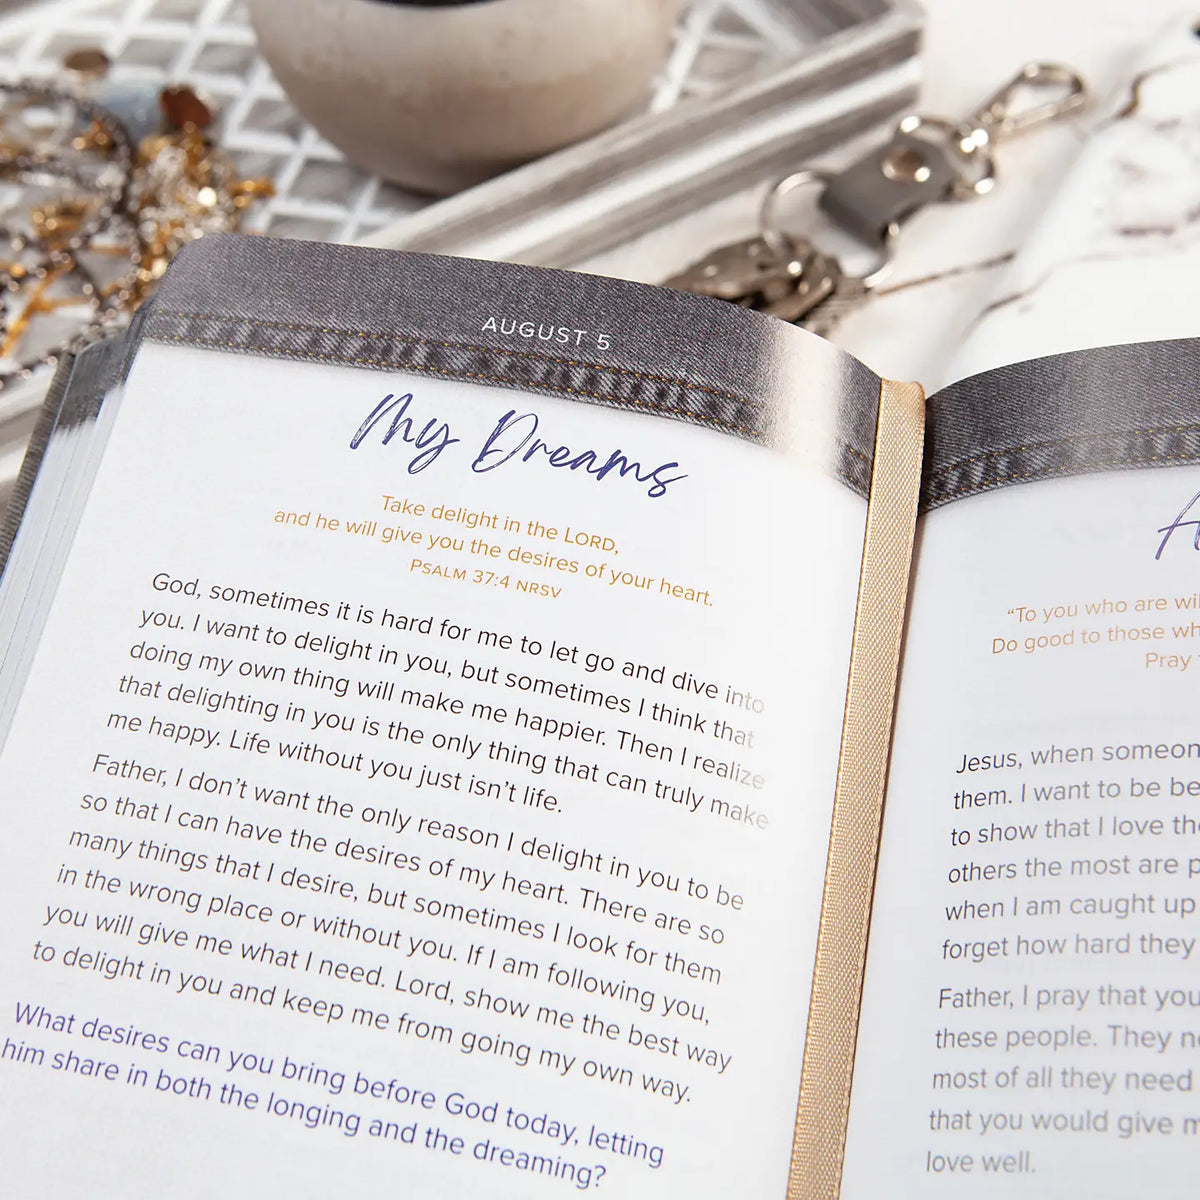 AUGUST 5
My Dreams
Take delight in the LORD,
and he will give you the desires of your heart.
PSALM 37:4 NRSV
God, sometimes it is hard for me to let go and dive into
you. I want to delight in you, but sometimes I think that
doing my own thing will make me happier. Then I realize
that delighting in you is the only thing that can truly make
me happy. Life without you just isn't life.
Father, I don't want the only reason I delight in you to be
so that I can have the desires of my heart. There are so
many things that I desire, but sometimes I look for them
in the wrong place or without you. If I am following you,
you will give me what I need. Lord, show me the best way
to delight in you and keep me from going my own way.
What desires can you bring before God today, letting
him share in both the longing and the dreaming?
"To you who are
Do good to those
Pray
Jesus, when
them. I want to be
to show that I love
others the most are
when I am caught up
forget how hard they
Father, I pray that you
these people. They
most of all they need
that you would give
love well.